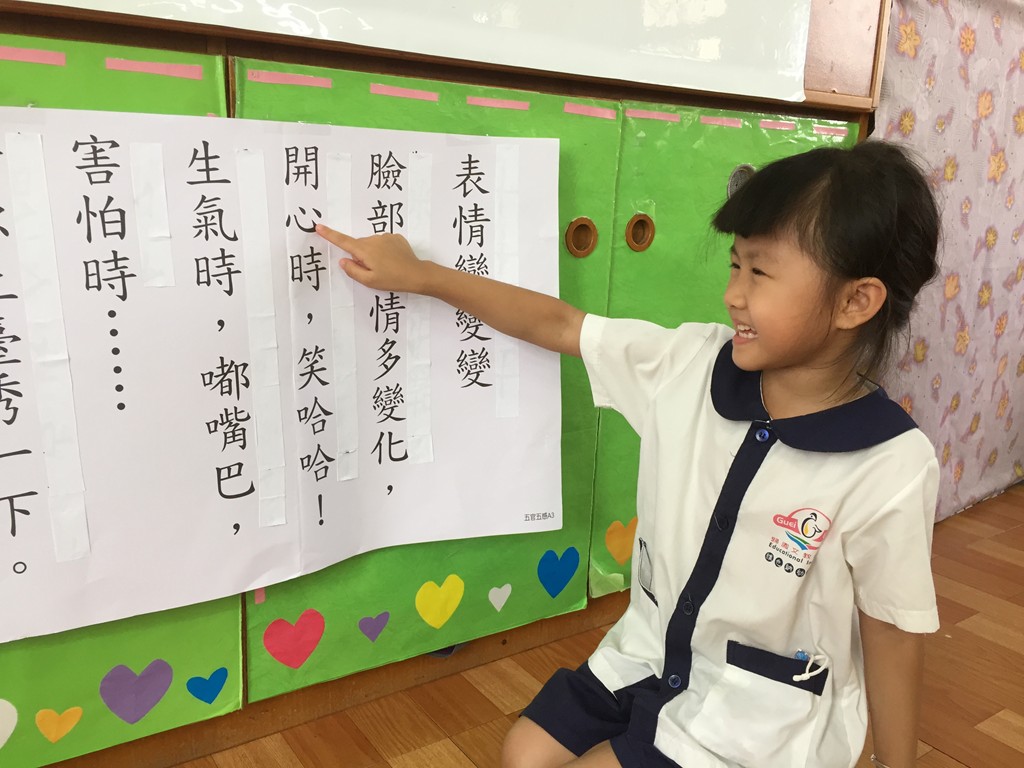 表情變變變
臉部 情多變化，
開心時，笑哈哈！
生氣時，嘟嘴巴，
害怕時……
秀一下。
五官五感A3
Guei
Educational